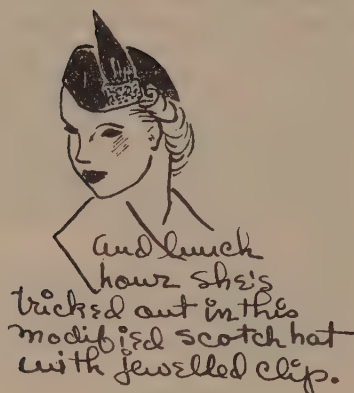 and lunch
hour she's
tricked out in this
modified scotch hat
with jewelled clip.